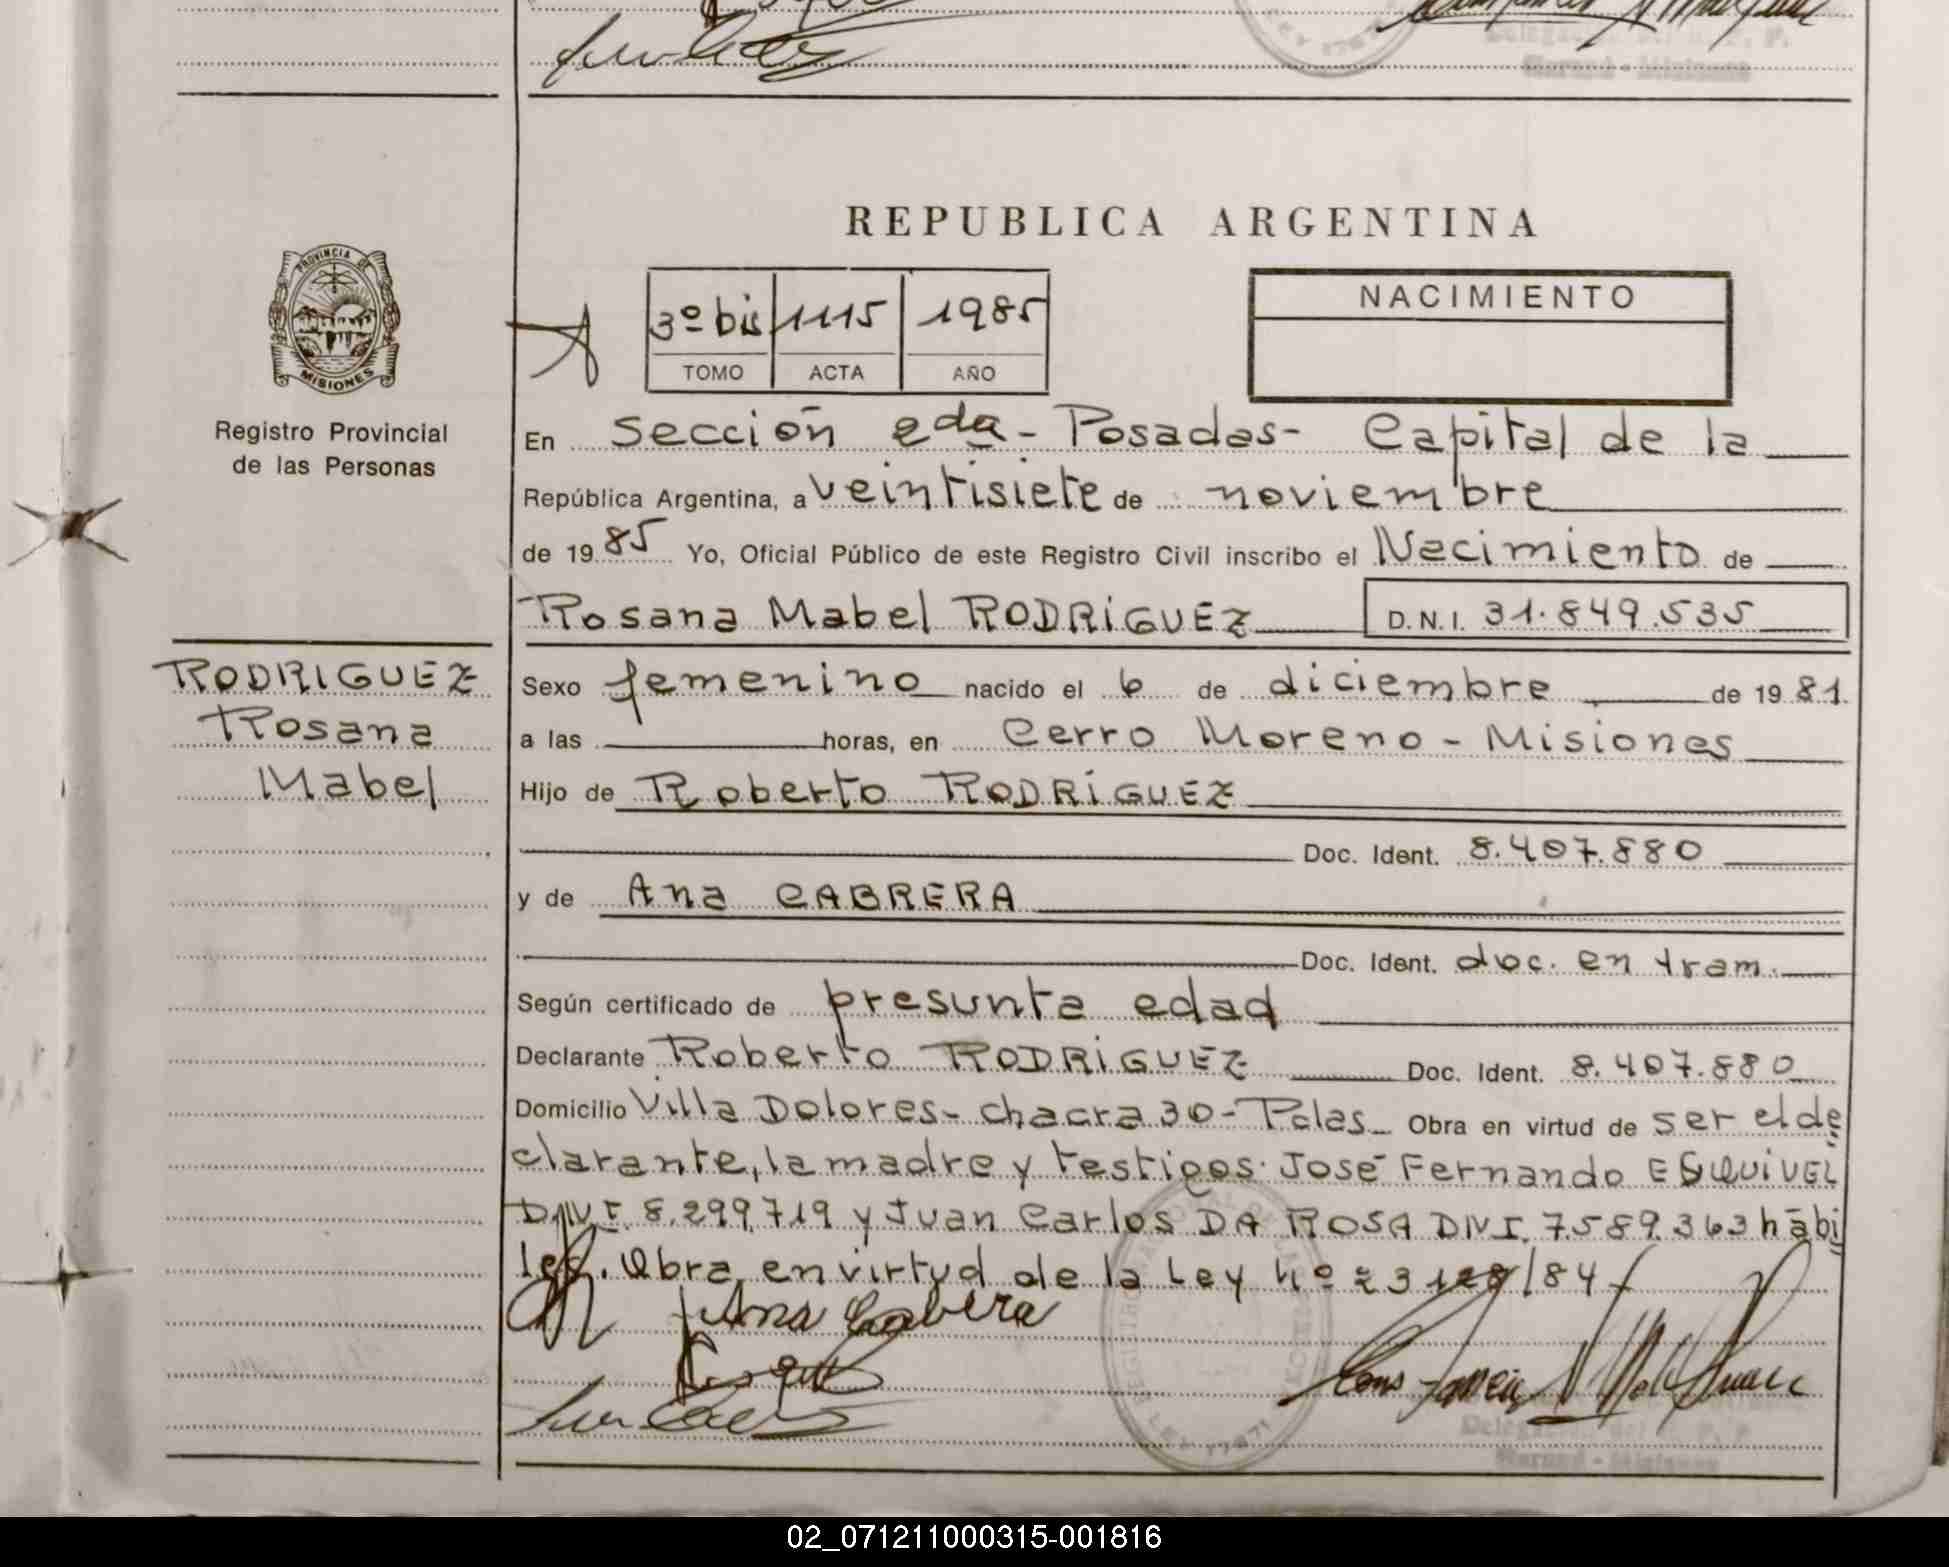 REPUBLICA ARGENTINA
PROVINCIA DE
MISIONES
Registro Provincial
de las Personas
3º bis 1115 1985
TOMO ACTA AÑO
NACIMIENTO
En Sección 2da - Posadas - Capital de la
República Argentina, a veintisiete de noviembre
de 1985 Yo, Oficial Público de este Registro Civil inscribo el Nacimiento de
Rosana Mabel RODRIGUEZ D.N.I. 31.849.535
RODRIGUEZ
Rosana
Mabel
Sexo femenino nacido el 6 de diciembre de 1981.
a las horas, en Cerro Moreno - Misiones
Hijo de Roberto RODRIGUEZ
Doc. Ident. 8.407.880
y de Ana CABRERA
Doc. Ident. doc. en tram.
Según certificado de presunta edad
Declarante Roberto RODRIGUEZ Doc. Ident. 8.407.880
Domicilio Villa Dolores - chacra 30 - Pdas Obra en virtud de ser el de
clarante, la madre y testigos: José Fernando ESQUIVEL
DNI. 8.299.719 y Juan Carlos DA ROSA DNI. 7.589.363 hábi
les. Obra en virtud de la Ley Nº 23128/84
Ana Cabrera
LEY 17671
Misiones
02_071211000315-001816